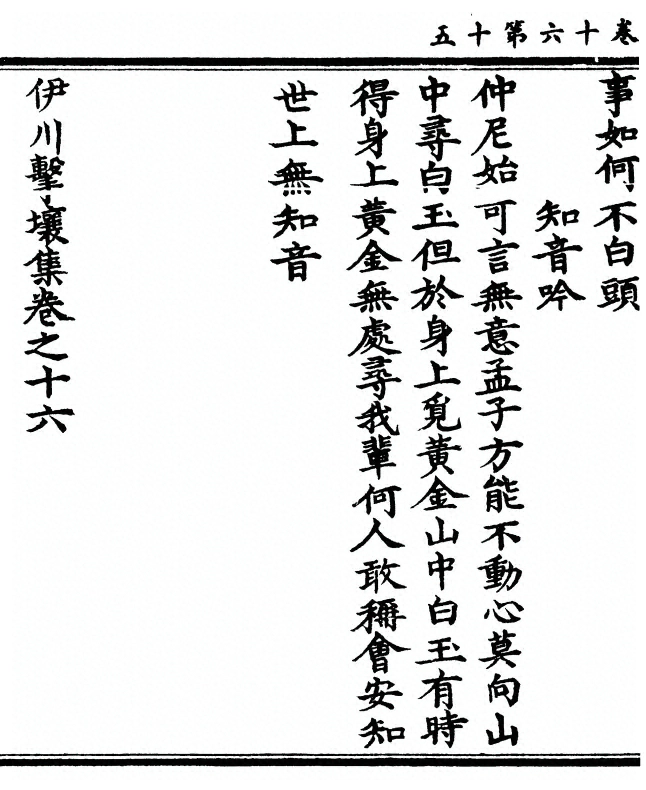 卷十六第十五
事如何不白頭
知音吟
仲尼始可言無意孟子方能不動心莫向山
中尋白玉但於身上覓黃金山中白玉有時
得身上黃金無處尋我輩何人敢稱會安知
世上無知音
伊川擊壤集卷之十六